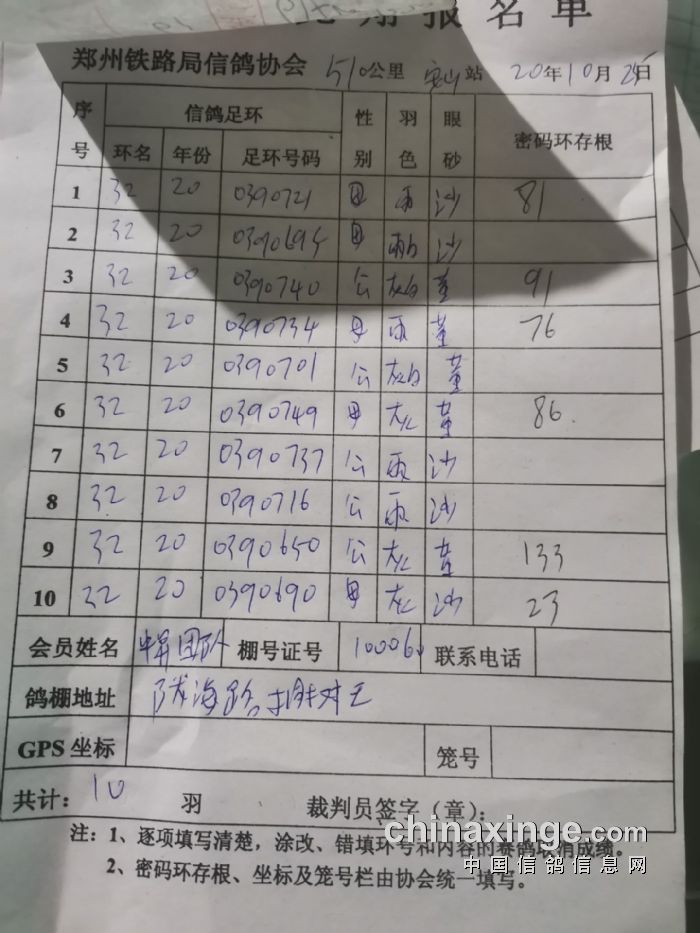 报名单
郑州铁路局信鸽协会 510公里 站 20年10月25日
序号 信鸽足环 性别 羽色 眼砂 密码环存根
环名 年份 足环号码
1 32 20 0390721 母 雨 沙 81
2 32 20 0390694 母 雨白 沙
3 32 20 0390740 公 灰白 黄 91
4 32 20 0390734 母 雨 黄 76
5 32 20 0390701 公 灰白 黄
6 32 20 0390749 母 灰 黄 86
7 32 20 0390737 公 雨 沙
8 32 20 0390716 公 雨 沙
9 32 20 0390650 公 灰 黄 133
10 32 20 0390690 母 灰 沙 23
会员姓名 团队 棚号证号 10006 联系电话
鸽棚地址 陇海路
GPS 坐标 笼号
共计: 10 羽 裁判员签字(章):
注: 1、逐项填写清楚,涂改、错填环号和内容的赛鸽取消成绩。
2、密码环存根、坐标及笼号栏由协会统一填写。
chinaxinge.com
中国信鸽信息网